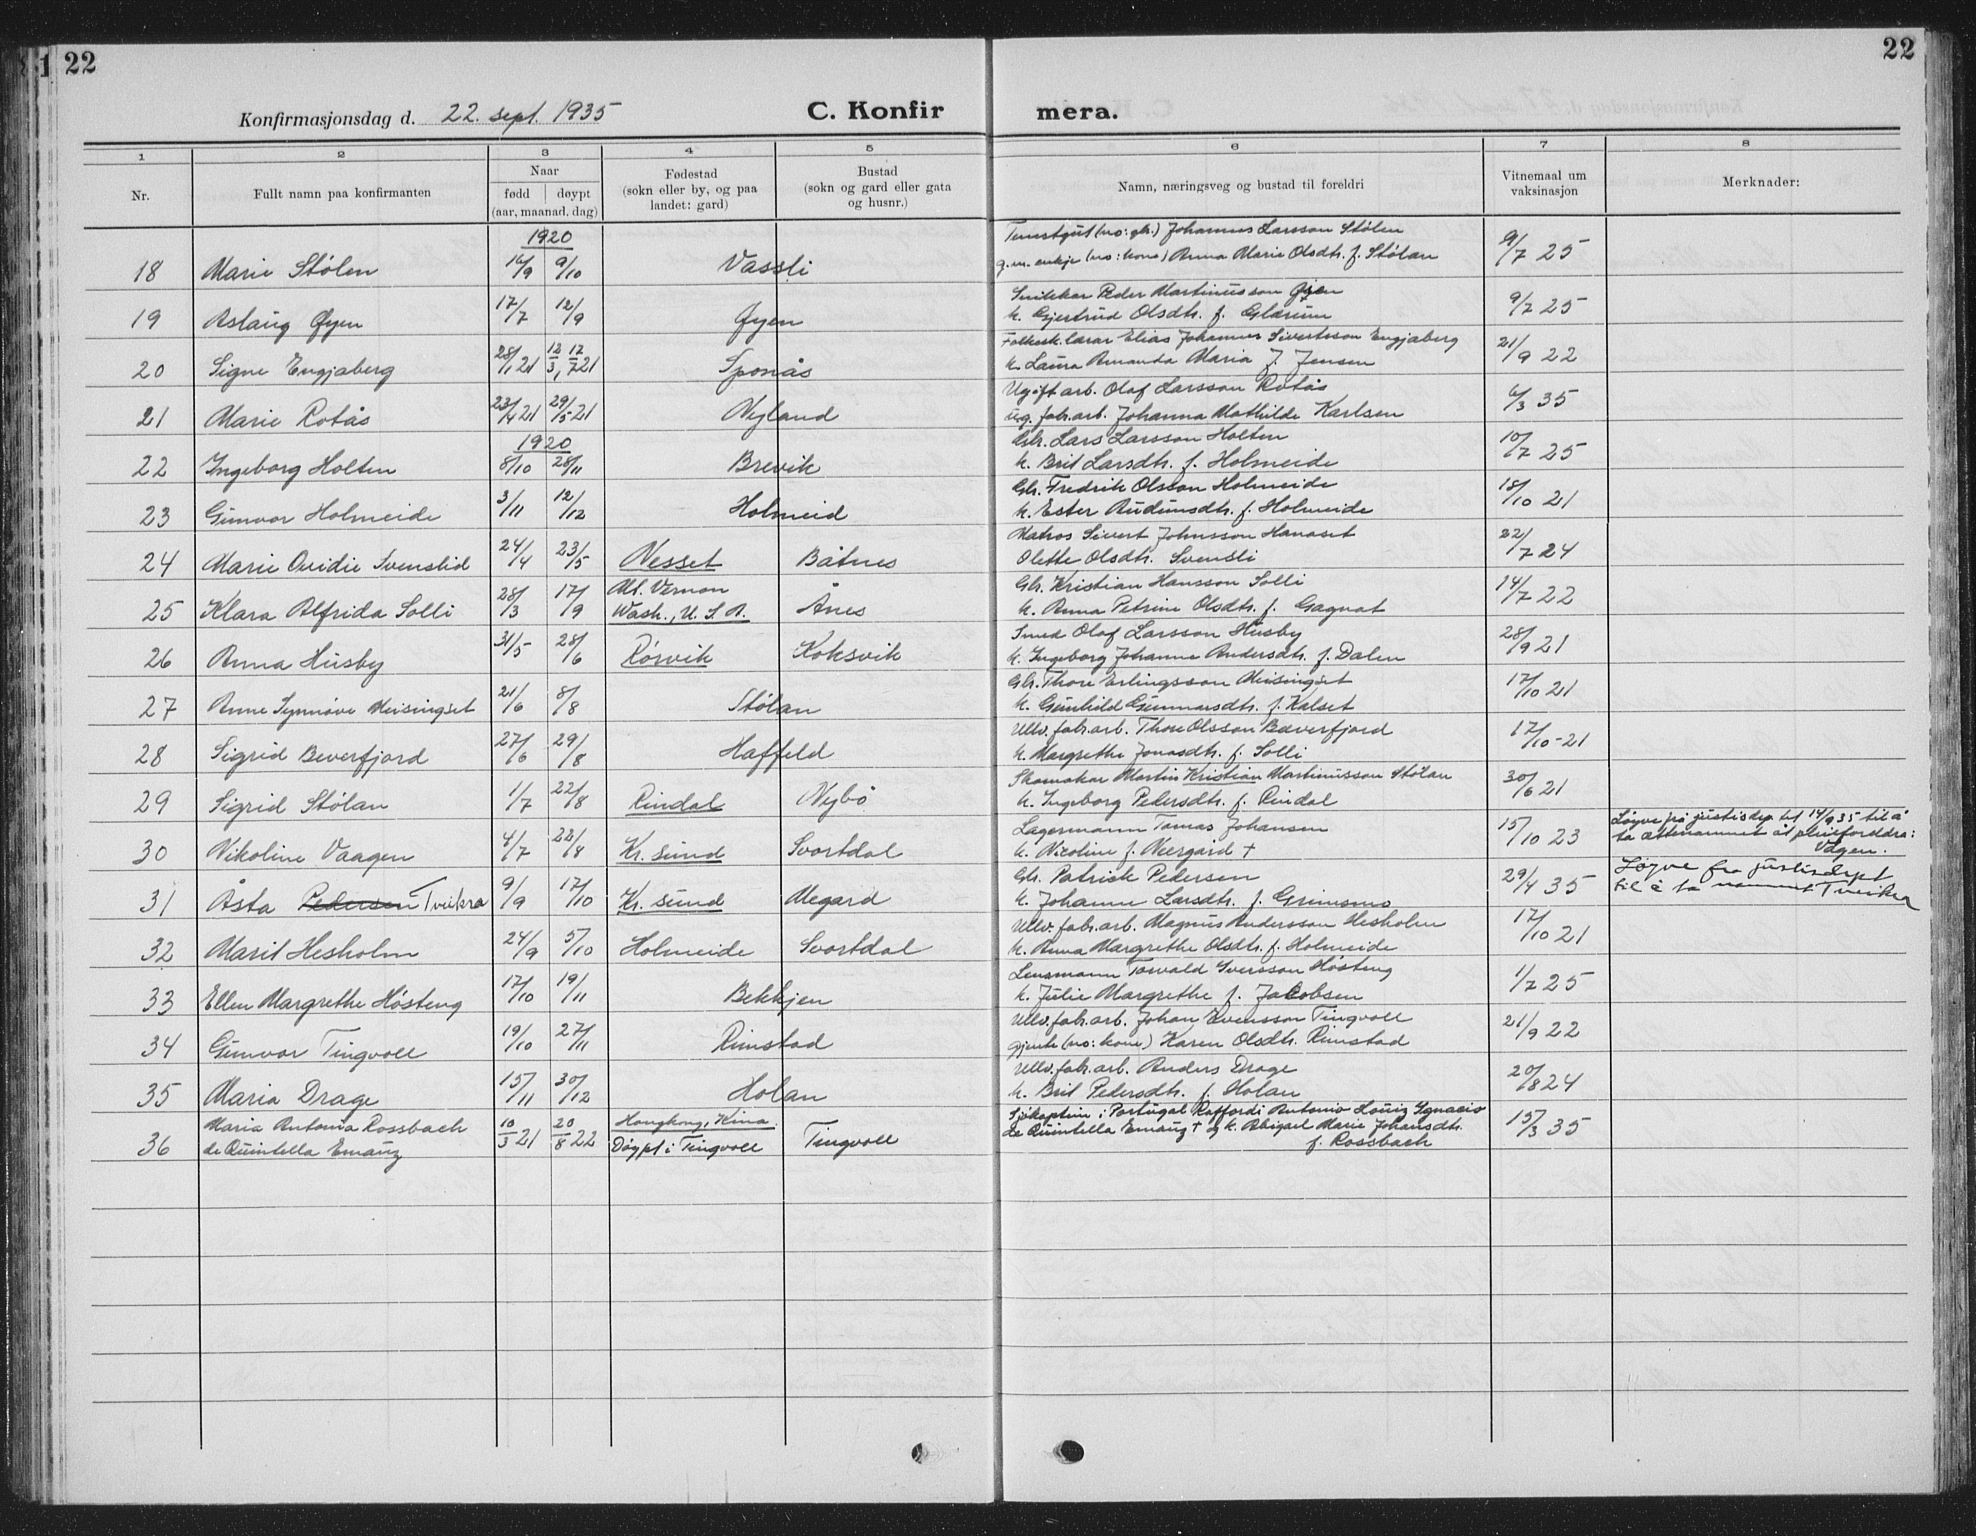 1 22
22
Konfirmasjonsdag d. 22. sept. 1935
C. Konfir
mera.
1 2 3 4 5 6 7 8
Nr.
Fullt namn paa konfirmanten
Naar
fødd døypt
(aar, maanad, dag)
Fødestad
(sokn eller by, og paa
landet: gard)
Bustad
(sokn og gard eller gata
og husnr.)
Namn, næringsveg og bustad til foreldri
Vitnemaal um
vaksinasjon
Merknader:
1920
Johannes Larsson Stølen
18 Marie Stølen 16/9 9/10 Vassli
g.m. enkje (no: kone) Anna Marie Olsdtr. f. Stølan 9/7 25
Peder Martinusson Øyen
19 Aslaug Øyen 17/7 12/9 Øyen
k. Gjertrud Olsdtr. f. Glærum 9/7 25
Folkesk.lærar Elias Johannes Sivertsson Engjaberg
20 Signe Engjaberg 28/1 21 12/3, 17/7 21 Sponås
k. Laura Amanda Maria f. Jensen 21/9 22
Ugift arb. Olaf Larsson Rotås
21 Marie Rotås 23/4 21 29/5 21 Nyland
ug. fabr.arb. Johanna Mathilde Karlsen 6/3 35
1920
Gbr. Lars Larsson Holten
22 Ingeborg Holten 8/10 28/11 Brevik
k. Brit Larsdtr. f. Holmeide 10/7 25
Gbr. Fredrik Olsson Holmeide
23 Gunvor Holmeide 3/11 12/12 Holmeid
k. Ester Audunsdtr. f. Holmeide 18/10 21
Matros Sivert Johnsson Hanaset
24 Marie Ovidie Svenslid 24/4 23/5 Nesset Båtnes
Olette Olsdtr. Svensli 22/7 24
Mt. Vernon
Gbr. Kristian Hansson Solli
25 Klara Alfrida Solli 28/3 17/9 Wash., U.S.A. Ånes
k. Anna Petrine Olsdtr. f. Gagnat 14/7 22
Smed Olaf Larsson Husby
26 Anna Husby 31/5 28/6 Rørvik Koksvik
k. Ingeborg Johanne Andersdtr. f. Dalen 28/9 21
Gbr. Thore Erlingsson Meisingset
27 Anne Synnøve Meisingset 21/6 8/8 Stølan
k. Gunhild Gunnarsdtr. f. Kalset 17/10 21
Ullv.fabr.arb. Thore Olsson Bæverfjord
28 Sigrid Beverfjord 27/6 29/8 Haffeld
k. Margrethe Jonasdtr. f. Solli 17/10-21
Skomakar Martin Kristian Martinusson Stølan
29 Sigrid Stølan 1/7 22/8 Rindal Nybø
k. Ingeborg Pedersdtr. f. Rindal 30/6 21
Lagermann Tomas Johansen
30 Nikoline Vaagen 4/7 22/8 Kr. sund Svortdal
k. Nicoline f. Neergård † 15/10 23
Løyve frå justisdep. til 14/9 35 til å
ta ættenamnet åt pleieforeldra:
Vågen.
Gbr. Patrick Pedersen
31 Åsta Pedersen Tveikra 9/9 17/10 Kr. sund Megard
k. Johanne Larsdtr. f. Grimsmo 29/4 35
Løyve fra justisdept
til å ta namnet Tveikra
Ullv.fabr.arb. Magnus Andersson Hesholm
32 Marit Hesholm 24/9 5/10 Holmeide Svortdal
k. Anna Margrethe Olsdtr. f. Holmeide 17/10 21
Lensmann Torvald Iversson Høsteng
33 Ellen Margrethe Høsteng 17/10 19/11 Bekkjen
k. Julie Margrethe f. Jacobsen 1/7 25
Ullv.fabr.arb. Johan Evensson Tingvoll
34 Gunvor Tingvoll 19/10 27/11 Rimstad
gjente (no: kone) Karen Olsdtr. Rimstad 21/9 22
Ullv.fabr.arb. Anders Drage
35 Maria Drage 15/11 30/12 Holan
k. Brit Pedersdtr. f. Holan 20/8 24
Maria Antonia Rossbach
Hongkong, Kina
Sjøkaptein i Portugal Raffordi Antonio Louiz Ignacio
36 de Quintella Emauz 10/3 21 20/8 22 Døypt i Tingvoll Tingvoll
de Quintella Emauz † og k. Abigael Marie Johansdtr.
f. Rossbach 15/3 35